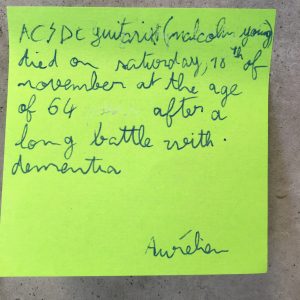 AC/DC guitarist (malcolm young)
died on saturday, 18th of
november at the age
of 64 after a
long battle with
dementia
Aurélien